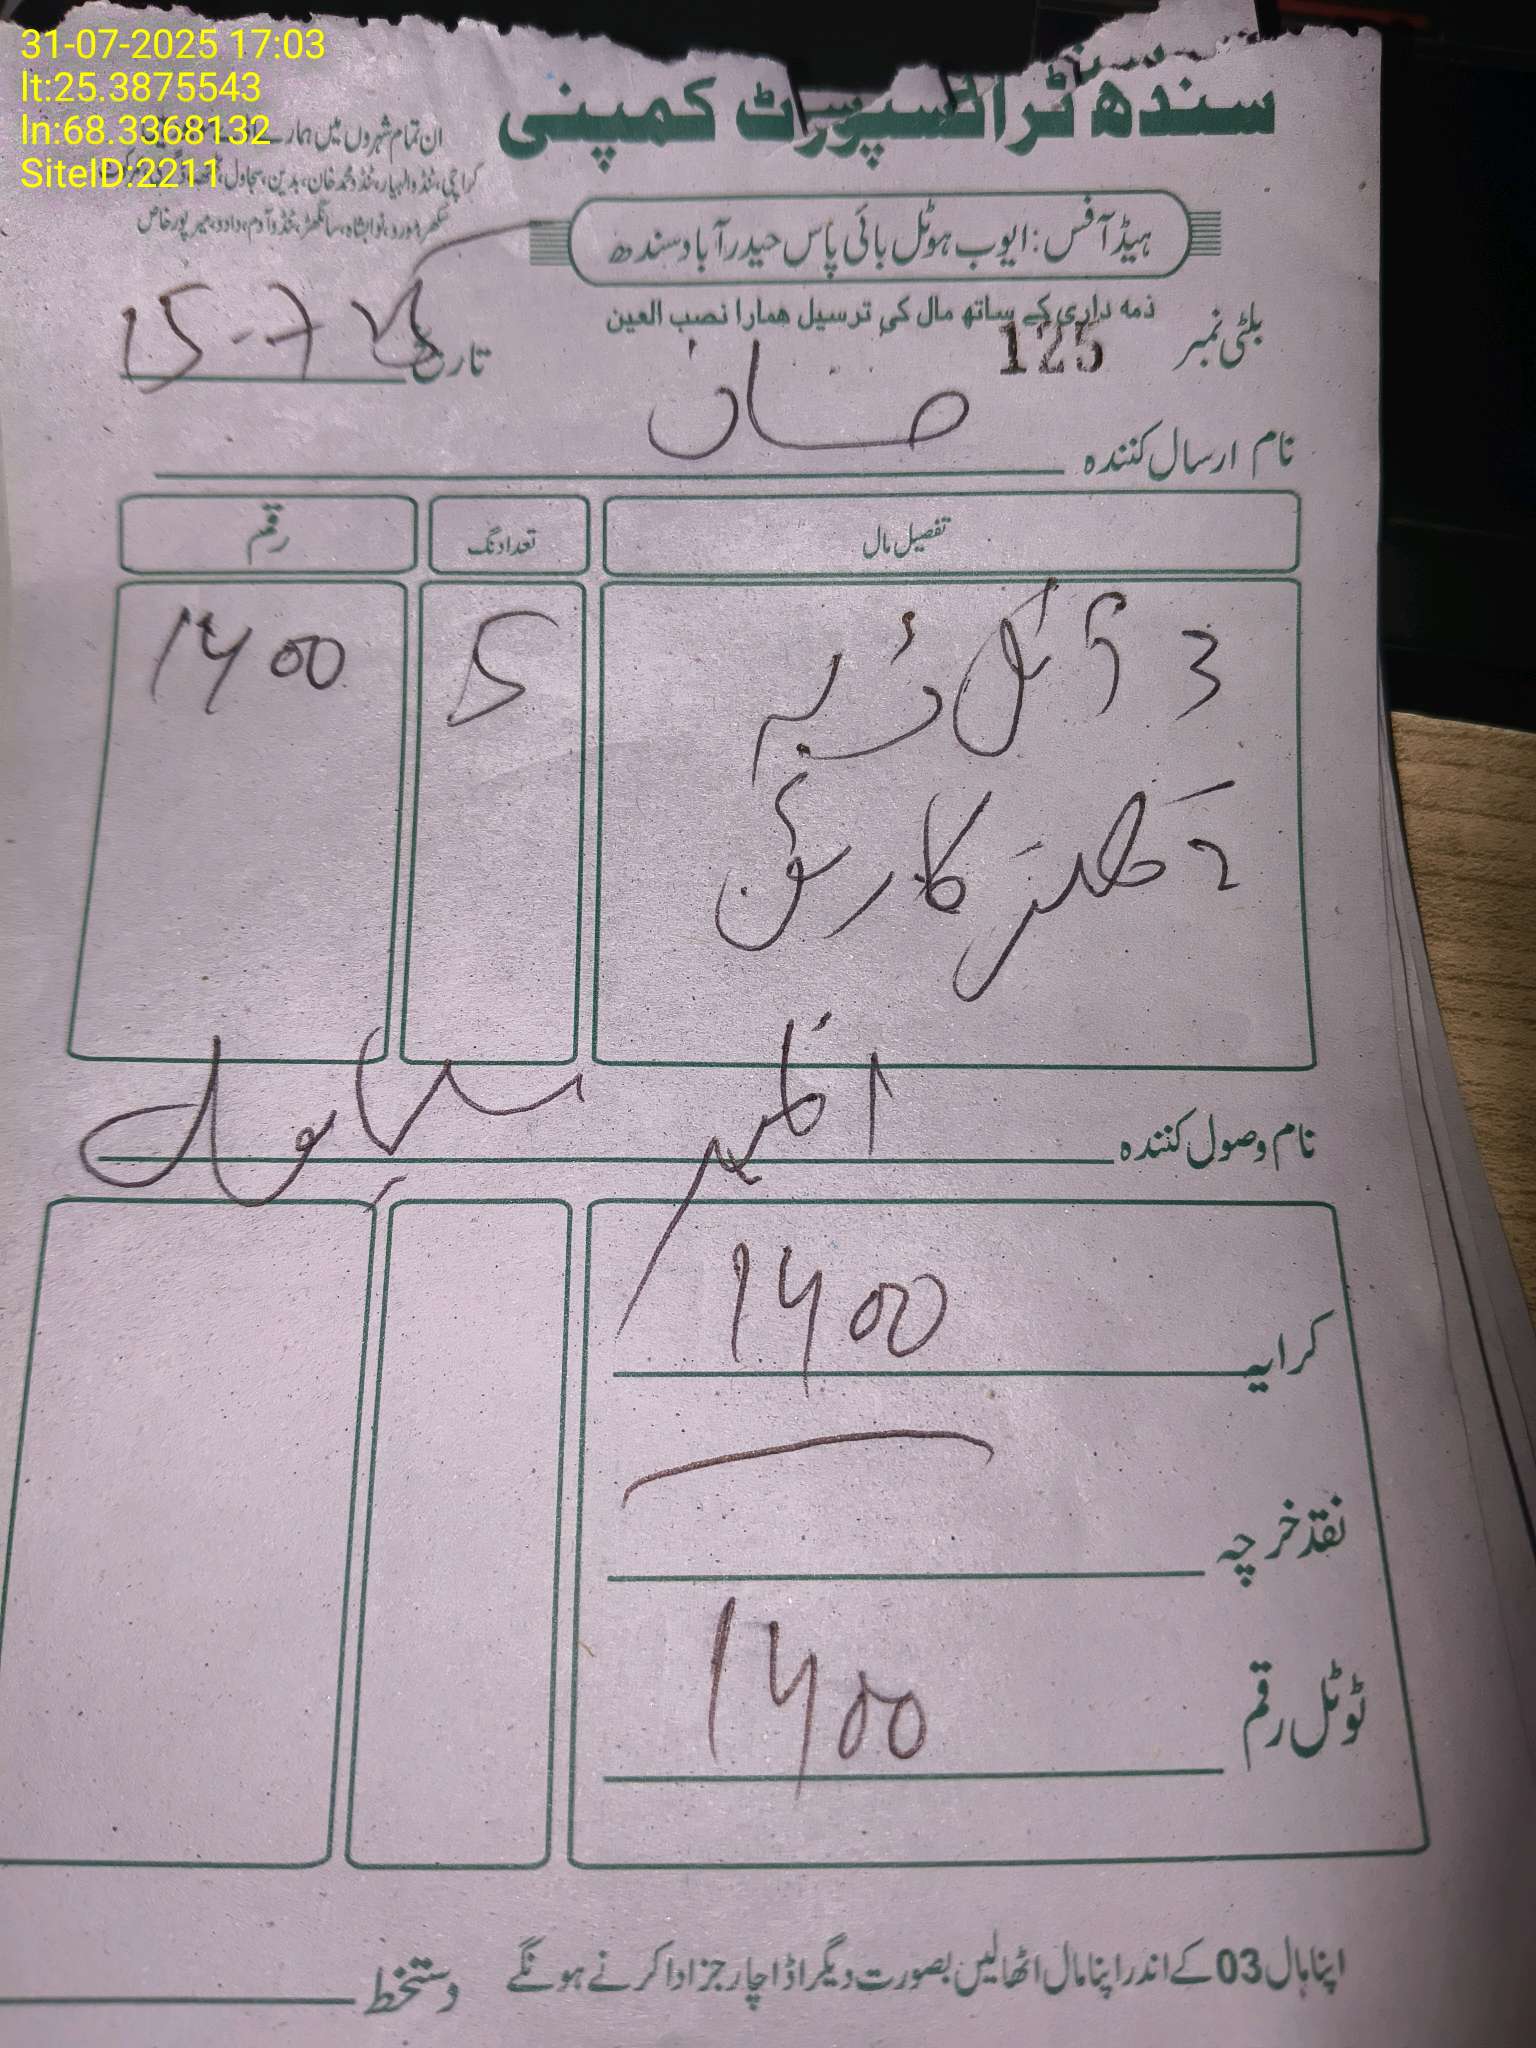 31-07-2025 17:03
lt:25.3875543
ln:68.3368132
SiteID:2211
سندھ ٹرانسپورٹ کمپنی
ان تمام شہروں میں ہمارے
کراچی، ٹنڈوالہیار، ٹنڈو محمد خان، بدین، سجاول،
سکھر، مورو، نوابشاہ، سانگھڑ، ٹنڈوآدم، دادو، میرپورخاص
ہیڈ آفس: ایوب ہوٹل بائی پاس حیدرآباد سندھ
ذمہ داری کے ساتھ مال کی ترسیل ہمارا نصب العین
بلٹی نمبر 125
تاریخ 15-7
نام ارسال کنندہ
تفصیل مال تعداد نگ رقم
3 آئل ڈبہ 5 1400
2 کارٹن
نام وصول کنندہ
کرایہ 1400
نقد خرچہ
ٹوٹل رقم 1400
اپنا مال 03 کے اندر اپنا مال اٹھالیں بصورت دیگر اڈا چارجز ادا کرنے ہونگے
دستخط